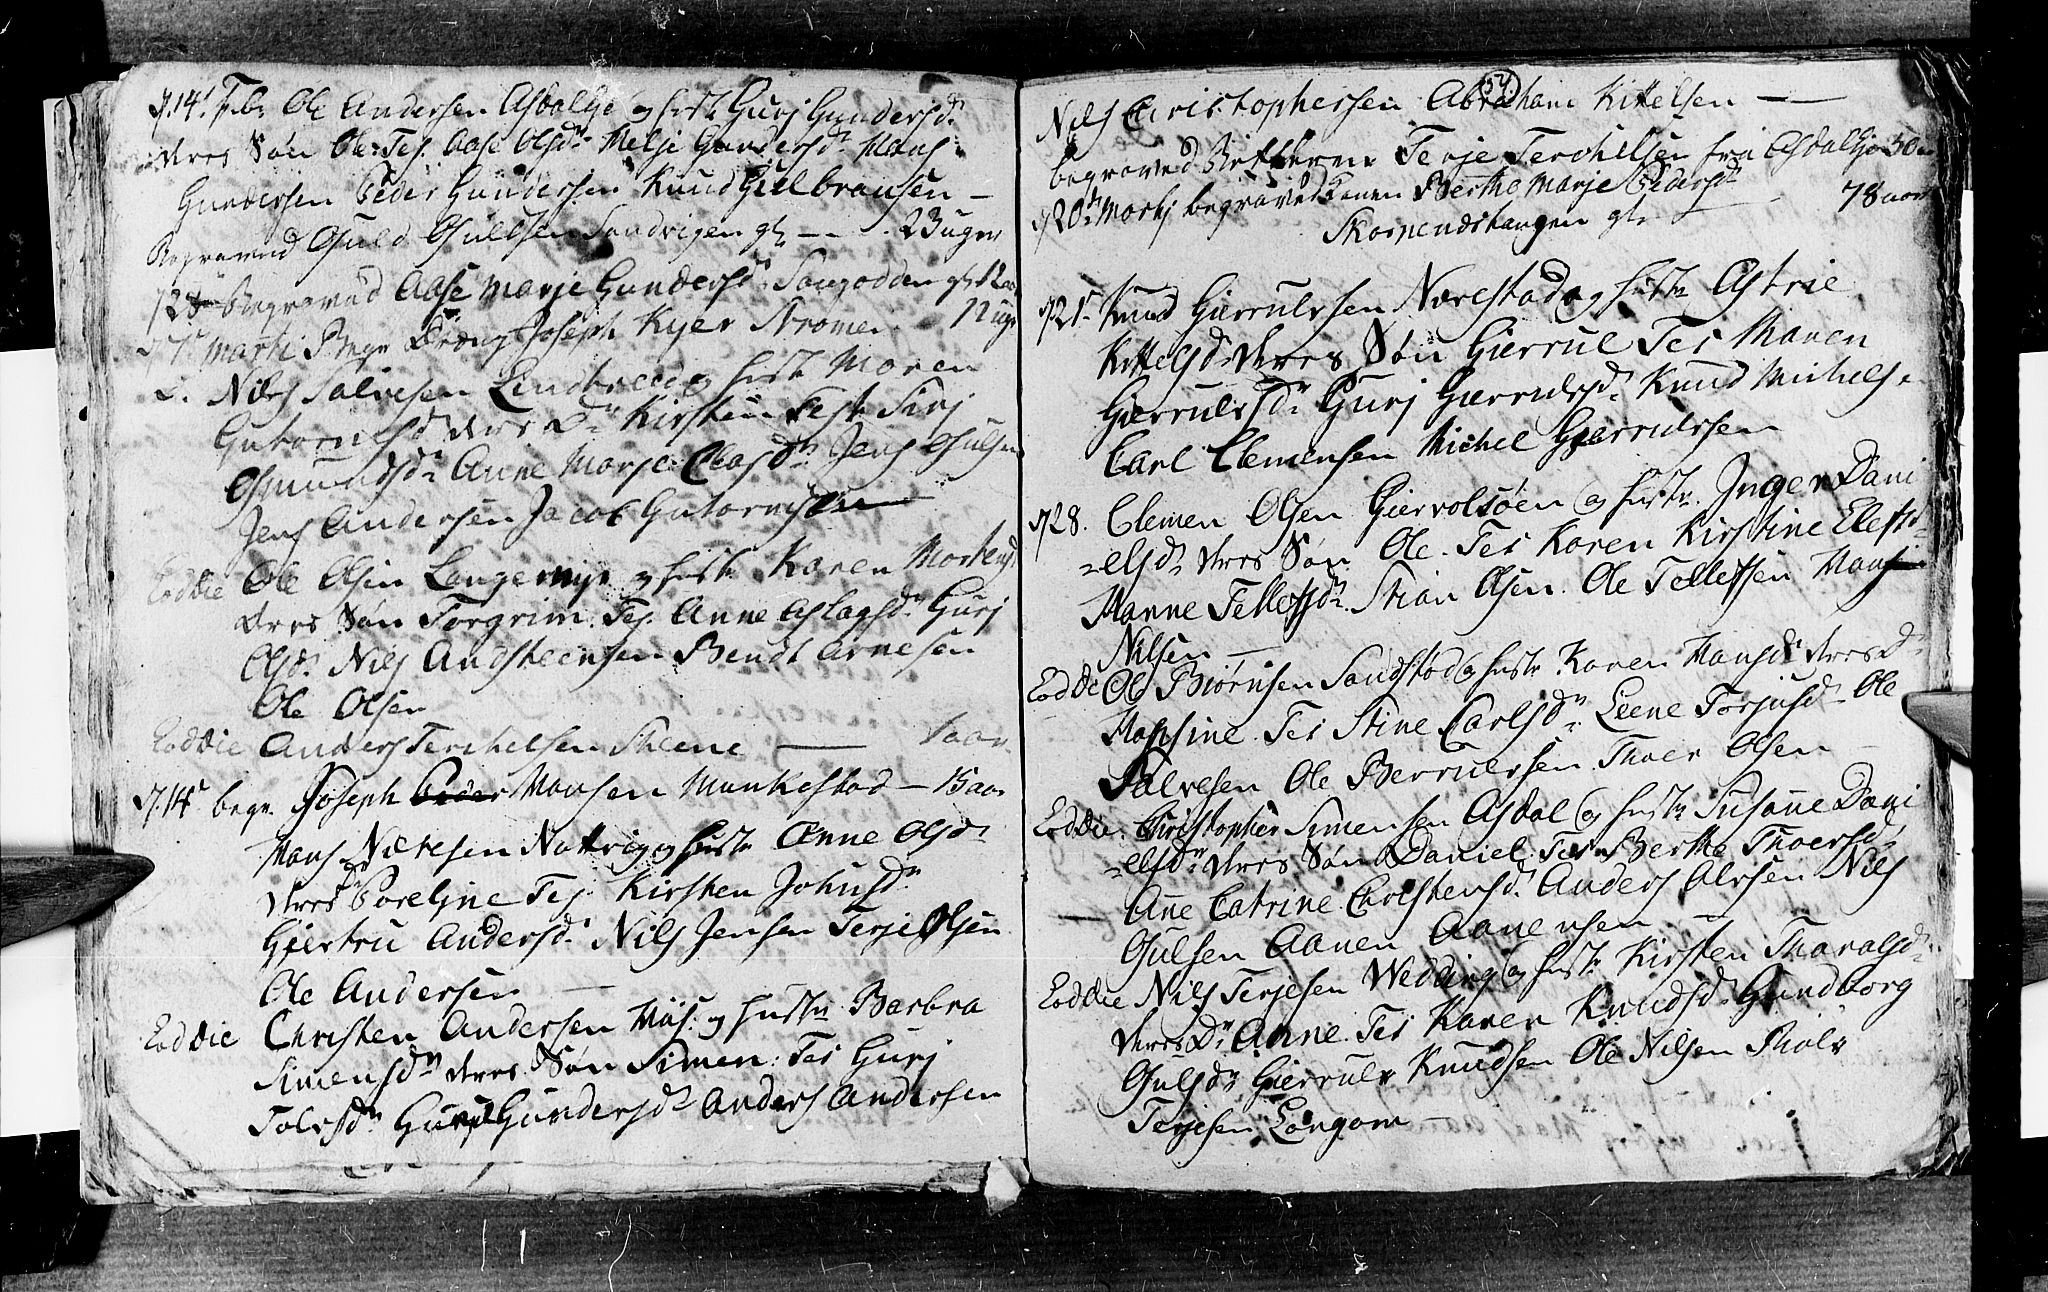 d. 14. Febr Ole Andersen Asdalsje og hustr Gurj Gundersdr
deres Søn Ole: Tes. Aase Olsdr Helje Gundersdr Hans
Gundersen Peder Gundersen Knud Gulbransen —
Begraved Guld Gulfsen Sandvigen gl — 23 uger
d 28 begraved Aase Marje Gundersdr Songodden gl
d 7. Martj Begr Dreng Joseph Kyer Stromen 12 uger
d. Niels Salvesen Lindtveed og hustr Maren
Gutormsdr deres Dr Kirstine Test Sirj
Osmundsdr Anne Marje Claasdr Jens Gulsen
Jens Andersen Jacob Gutormsen
Eoddie Ole Olsen Langemyr og hustr Karen Mortensdr
deres Søn Torgrim. Tes. Anne Aslagsdr Gurj
Olsdr Nils Andsteensen Bendt Arnesen
Ole Olsen
Eoddie Anders Terchelsen Skeene — 1 aar
d. 14 begr. Joseph Hansen Munkestad — 15 aar
Hans Nielsen Natvig og hustr Anne Olsdr
deres Dr Poreljne Tes. Kirsten Johnsdr
Giertru Andersdr Nils Jensen Terje Olsen
Ole Andersen —
Eoddie Christen Andersen Hiis og hustr Barbra
Simensdr deres Søn Simen: Tes Gurj
Tolvsdr Gurj Gundersdr Anders Andersen
54
Nils Christophersen Abraham Kittelsen —
begraved Terje Terchelsen fra Asdalsje 50
d 20 Martj begraved konen Berthe Marje Pedersdr
Skarpendstangen gl — 78 aar
d 21. Knud Gierrulvsen Nærestad og hustr Astrie
Kittelsdr deres Søn Gierrul Tes Maren
Gierrulvsdr Gurj Gierrulvsdr Knud Michelsen
Carl Clemensen Michel Gierrulvsen
d 28. Clemen Olsen Giervolsøen og hustr. Inger Dani
=elsdr deres Søn Ole. Tes Karen Kirstine Elefsdr
Hanne Tellefsdr. Stian Olsen. Ole Tellefsen Hans
Nilsen —
Eoddie Ole Biørnsen Sandstod og hustr Karen Hansdr deres Dr
Hansine. Tes Stine Carlsdr. Leene Torjusdr Ole
Salvesen Ole Berrulvsen Thoer Olsen —
Eoddie. Christopher Simensen Asdal og hustr Susane Dani
=elsdr deres Søn Daniel. Tes Berthe Thoersdr
Ane Catrine Christensdr. Anders Alvsen Nils
Gulsen Aanen Aanensen —
Eoddie Nils Terjesen Wedding og hustr Kirsten Tharalsdr
deres Dr Anne. Tes Karen Knudsdr Gundborg
Gulsdr Gierrulv Knudsen Ole Nilsen Tholv
Terjesen Longom —